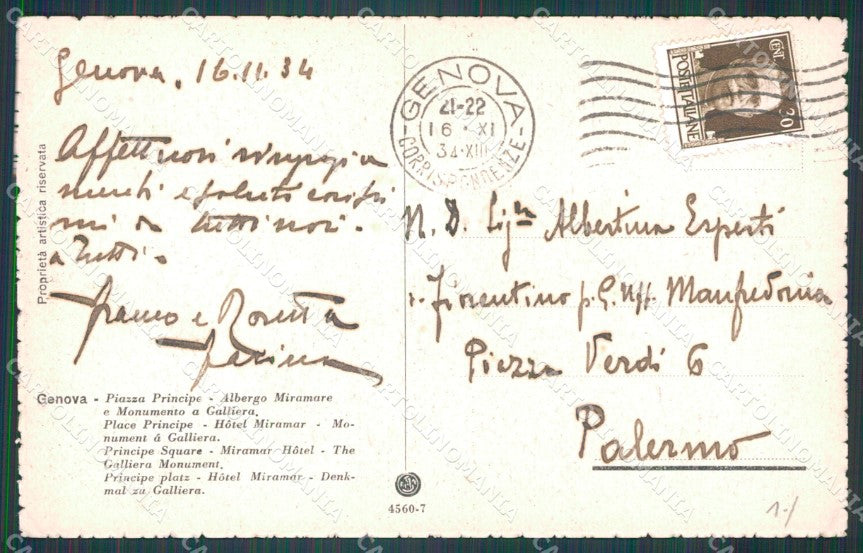 Genova, 16.11.34
Affettuosi ringrazia
menti e saluti carissi
mi da tutti noi.
a Tutti.
Franco e Rosetta
Proprietà artistica riservata
Genova - Piazza Principe - Albergo Miramare
e Monumento a Galliera.
Place Principe - Hôtel Miramar - Mo-
nument á Galliera.
Principe Square - Miramar Hôtel - The
Galliera Monument.
Principe platz - Hôtel Miramar - Denk-
mal zu Galliera.
4560-7
GENOVA
21-22
16·XI
34·XIII
CORRISPONDENZE
CENT. 20
POSTE ITALIANE
N. D. Sig.ra Albertina Esperti
Fiorentino p. G. Uff. Manfredonia
Piazza Verdi 6
Palermo
CARTOLINOMANIA